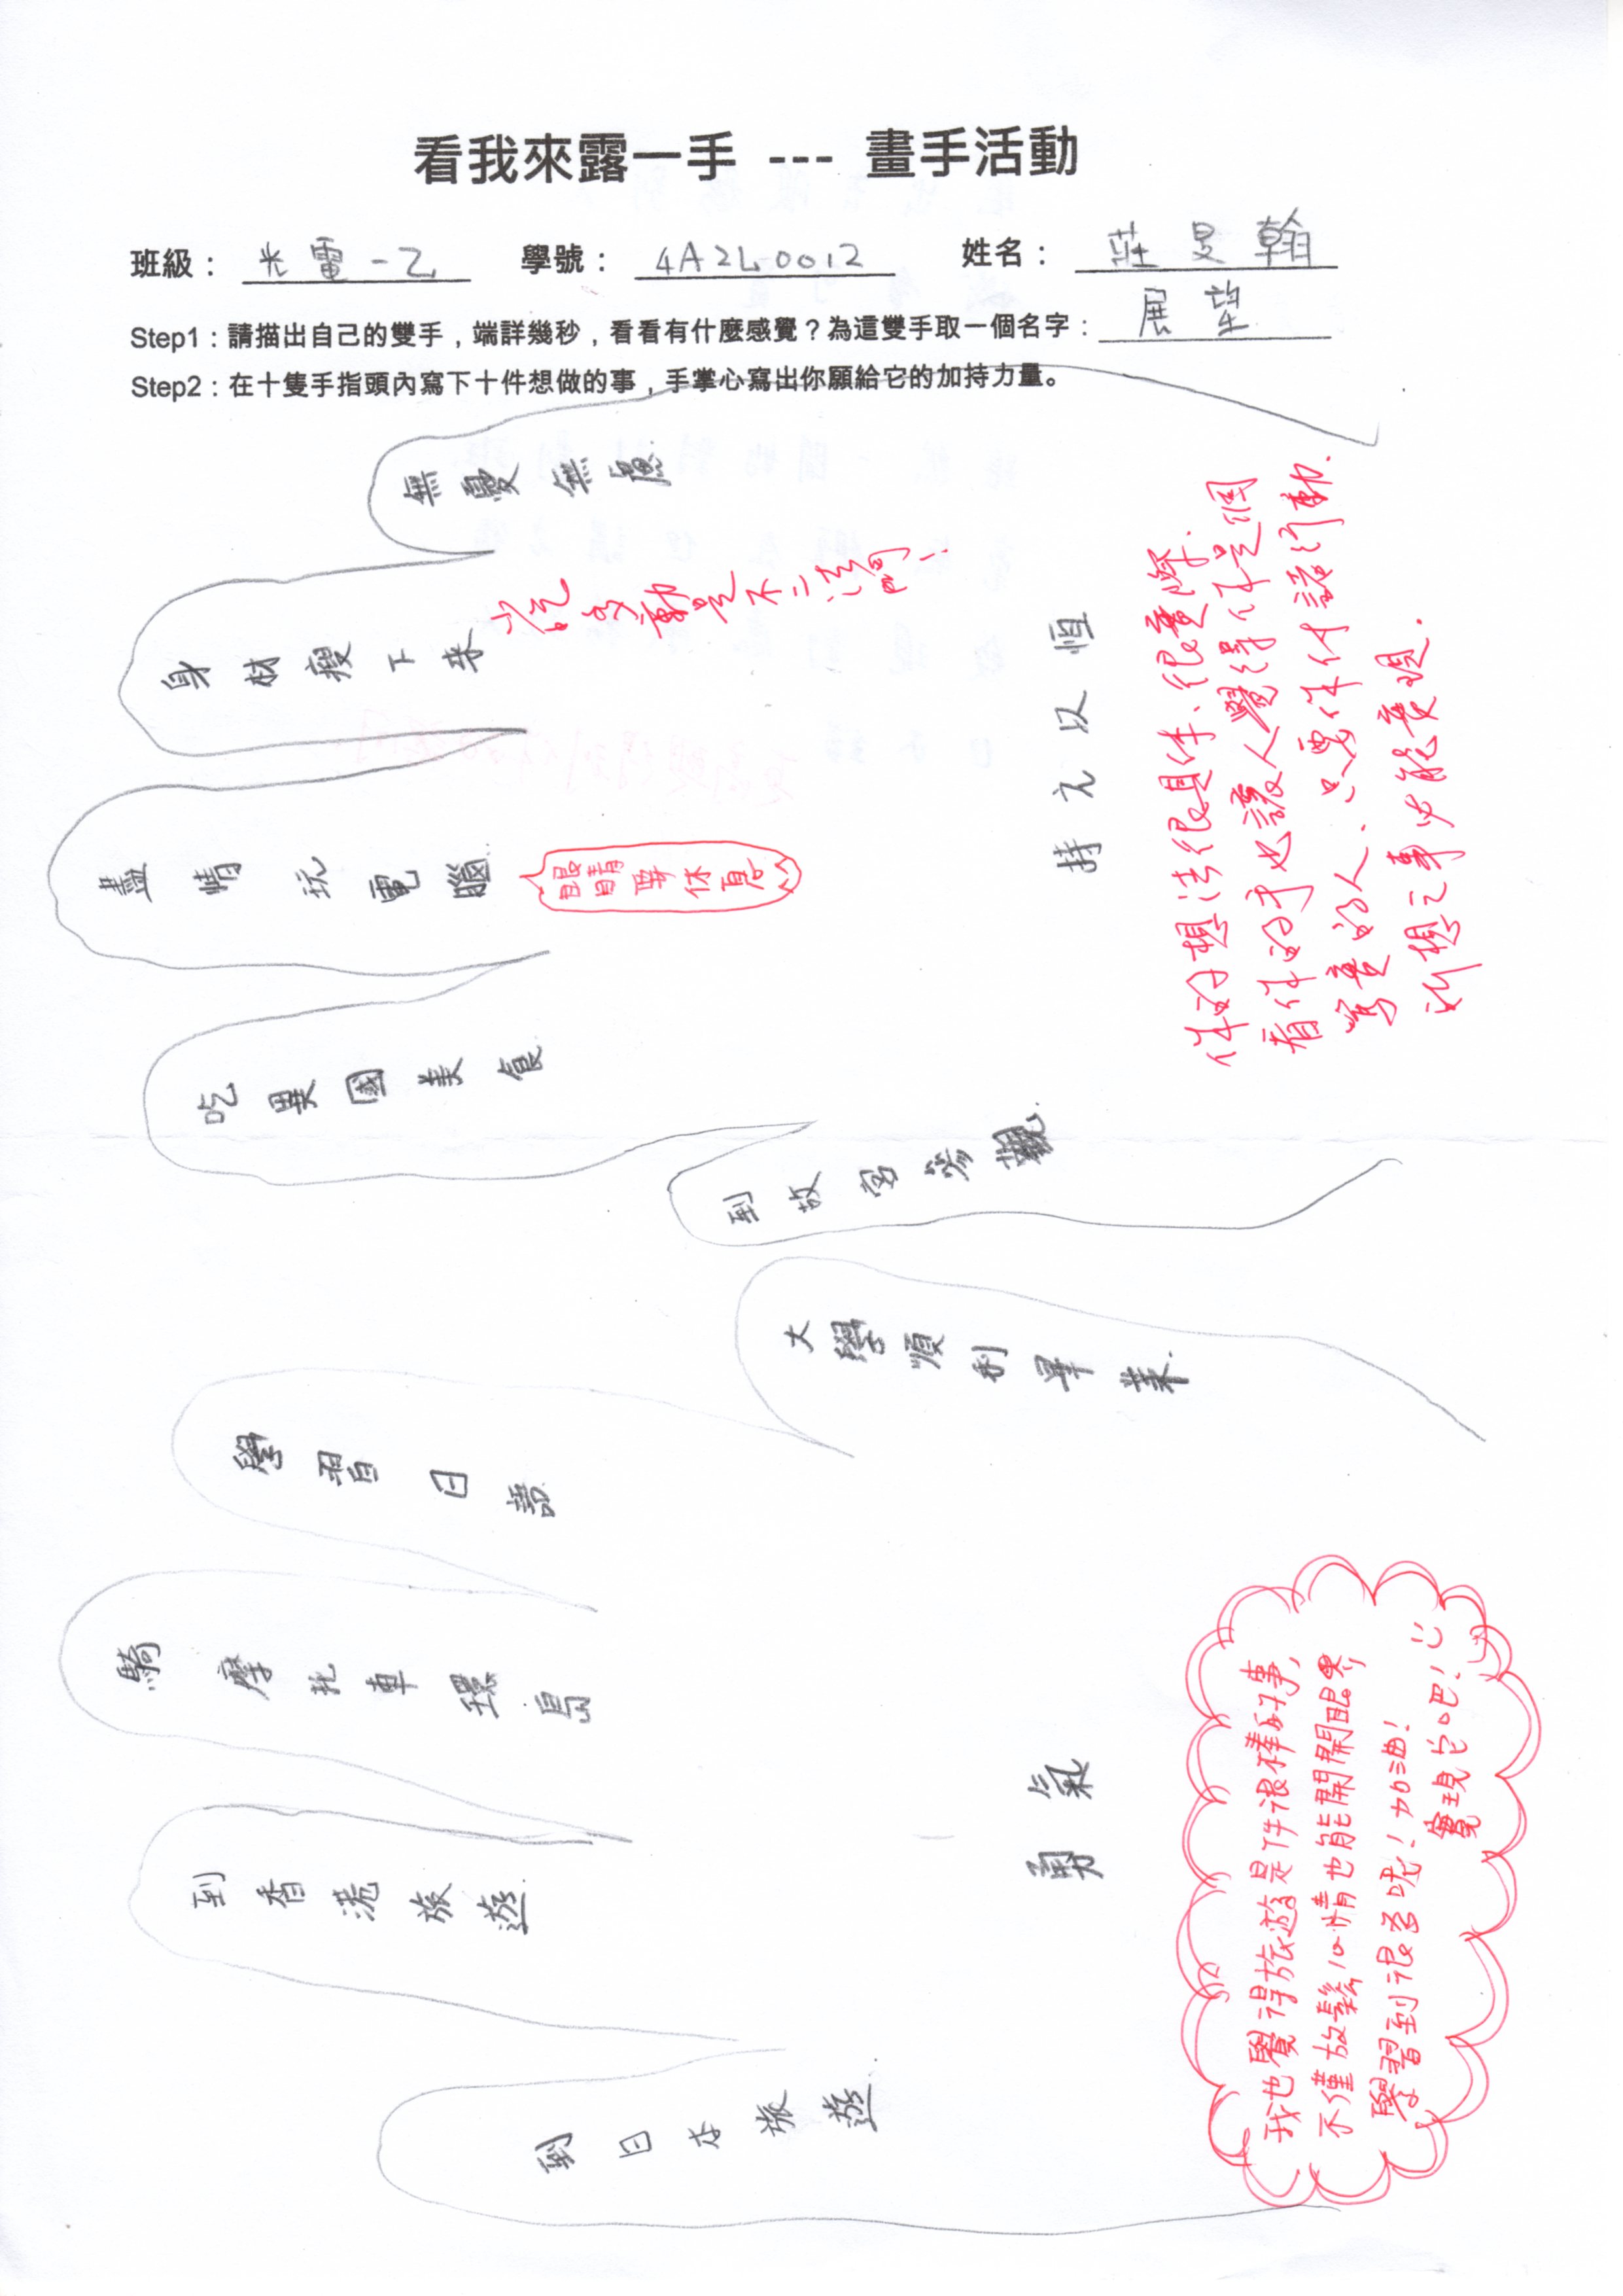 看我來露一手 --- 畫手活動
班級： 光電一乙 學號： 4A2L0012 姓名： 莊旻翰
Step1：請描出自己的雙手，端詳幾秒，看看有什麼感覺？為這雙手取一個名字： 展望
Step2：在十隻手指頭內寫下十件想做的事，手掌心寫出你願給它的加持力量。
無憂無慮
身材瘦下來
多運動是不二法門
盡情玩電腦
眼睛要休息
吃異國美食
到故宮參觀
持之以恆
你的想法很具体、很實際.
看你的手也讓人覺得你是個
篤實的人. 只要你付諸行動.
所想之事必能實現.
大學順利畢業.
學習日語
騎摩托車環島
到香港旅遊
到日本旅遊
勇氣
我也覺得旅遊是件很棒的事,
不僅放鬆心情也能開開眼界,
學習到很多呢! 加油!
實現它吧!